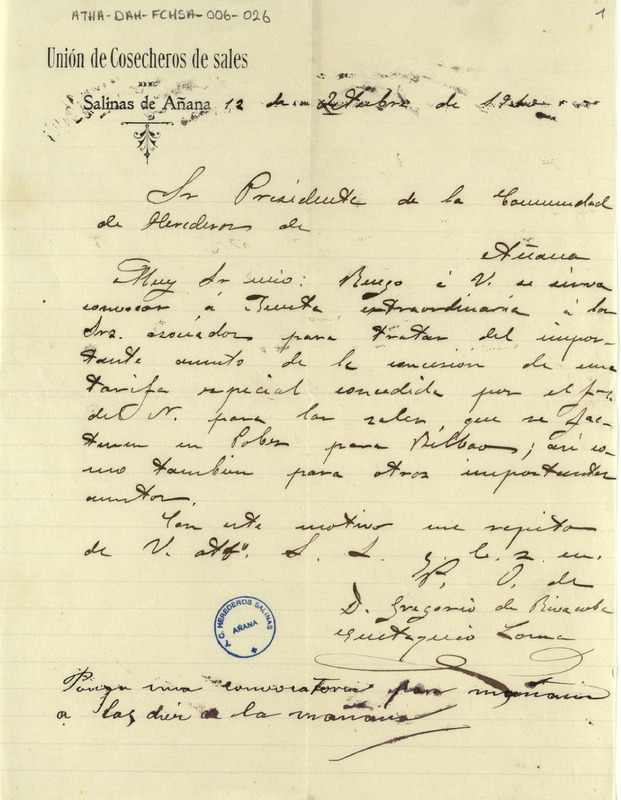 ATHA-DAH-FCHSA-006-026
1
Unión de Cosecheros de sales
DE
Salinas de Añana 12 de Octubre de
Sr Presidente de la Comunidad
de Herederos de
Añana
Muy Sr mio: Ruego á V. se sirva
convocar á Junta extraordinaria á los
Srs. asociados para tratar del impor-
tante asunto de la concesión de una
tarifa especial concedida por el f-c.
del N. para las sales, que se fac-
turen en Pobes para Bilbao; asi co-
mo tambien para otros importantes
asuntos.
Con este motivo me repito
de V. attº. S. S. q. b. s. m.
P. O. de
D. Gregorio de Rivacoba
Eustaquio Loma
C. HEREDEROS SALINAS
AÑANA
Ponga una convocatoria para mañana
a las diez de la mañana